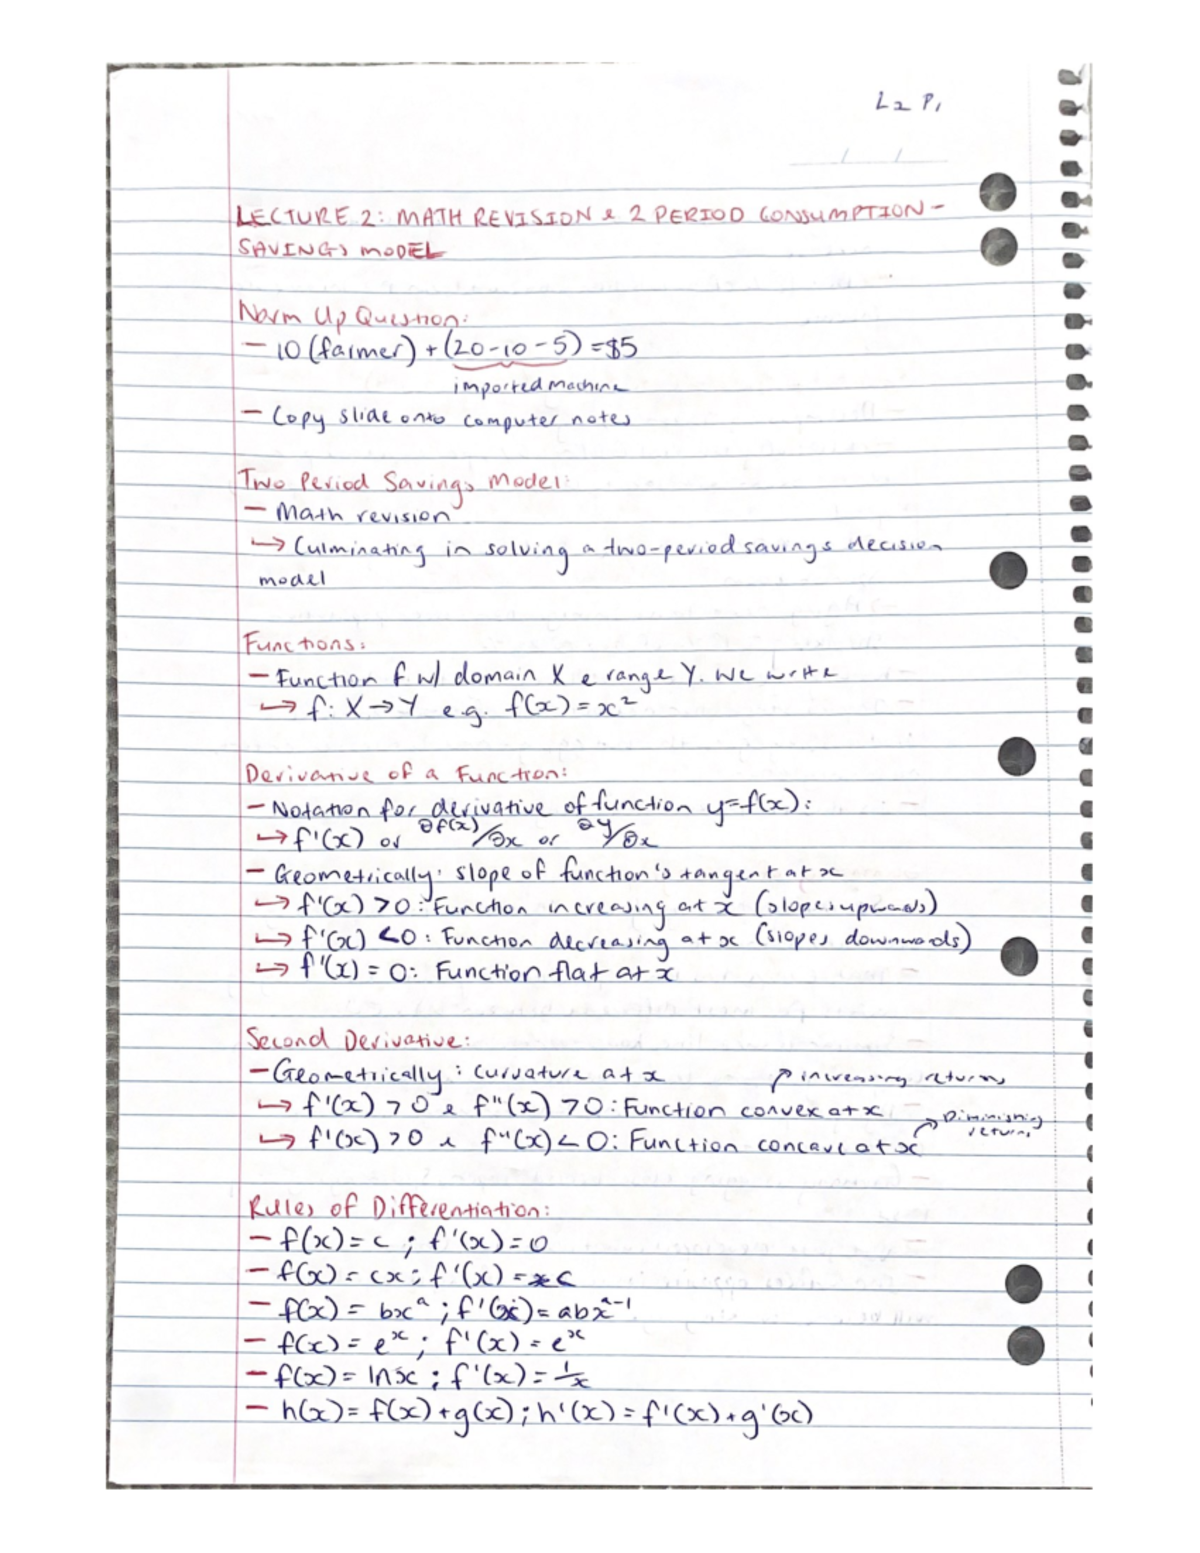 L2 P1
LECTURE 2: MATH REVISION & 2 PERIOD CONSUMPTION-
SAVINGS MODEL
Warm Up Question:
- 10 (farmer) + (20-10-5) = $5
imported machine
- Copy slide onto computer notes
Two Period Savings Model:
- Math revision
↳ Culminating in solving a two-period savings decision
model
Functions:
- Function f w/ domain X & range Y. We write
↳ f: X → Y e.g. f(x) = x²
Derivative of a Function:
- Notation for derivative of function y=f(x):
↳ f'(x) or ∂f(x)/∂x or ∂y/∂x
- Geometrically: slope of function's tangent at x
↳ f'(x) > 0: Function increasing at x (slopes upwards)
↳ f'(x) < 0: Function decreasing at x (slopes downwards)
↳ f'(x) = 0: Function flat at x
Second Derivative:
- Geometrically: curvature at x ↗ increasing returns
↳ f'(x) > 0 & f''(x) > 0: Function convex at x
↳ f'(x) > 0 & f''(x) < 0: Function concave at x ↗ Diminishing returns
Rules of Differentiation:
- f(x) = c ; f'(x) = 0
- f(x) = cx ; f'(x) = c
- f(x) = bxᵃ ; f'(x) = abxᵃ⁻¹
- f(x) = eˣ ; f'(x) = eˣ
- f(x) = ln x ; f'(x) = 1/x
- h(x) = f(x) + g(x) ; h'(x) = f'(x) + g'(x)